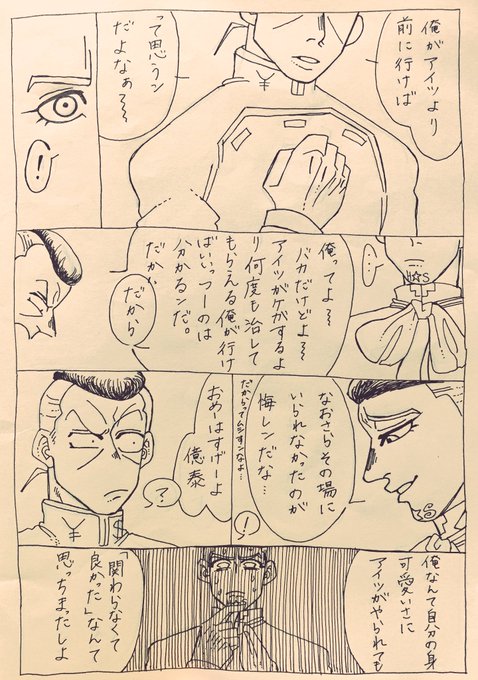 俺がアイツより
前に行けば
って思うン
だよなぁ〜〜
!
…
俺ってよ〜〜
バカだけどよ〜〜
アイツがケガするよ
り何度も治して
もらえる俺が行け
ばいいっつーのは
分かるンだ。
だか、
だから
なおさらその場に
いられなかったのが
悔しンだな…
!
だからって
おめーはすげーよ
億泰
?
¥
$
俺なんて自分の身
可愛いさに
アイツがやられても
「関わらなくて
良かった」なんて
思っちまったしよ